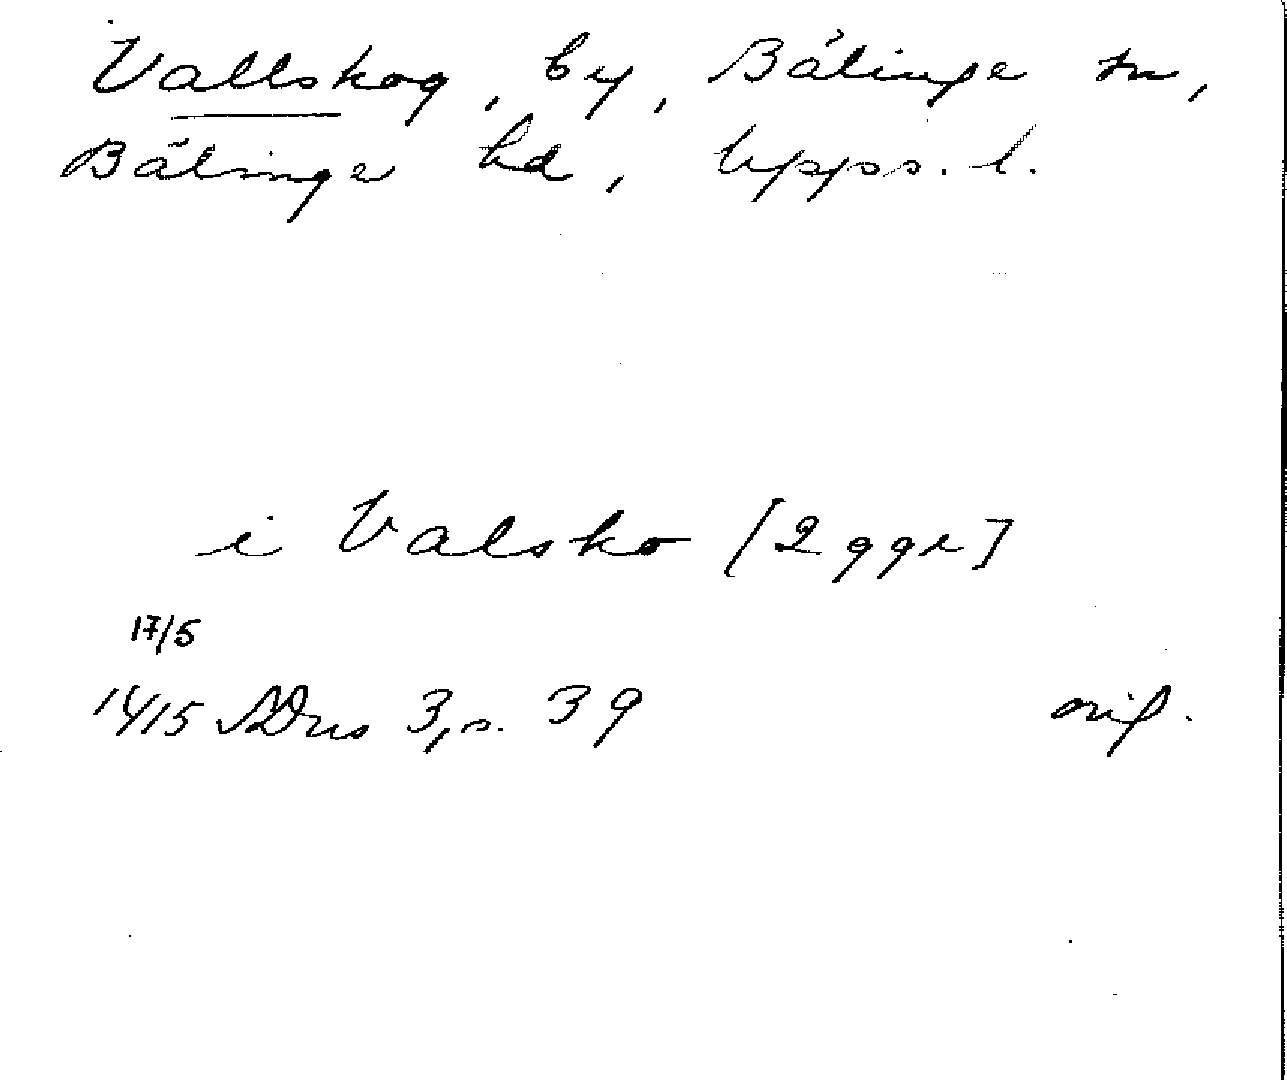 Vallskog, by, Bälinge sn,
Bälinge hd, Upps. l.
i Valsko [2 ggr]
17/5
1415 SDns 3, s. 39 orig.